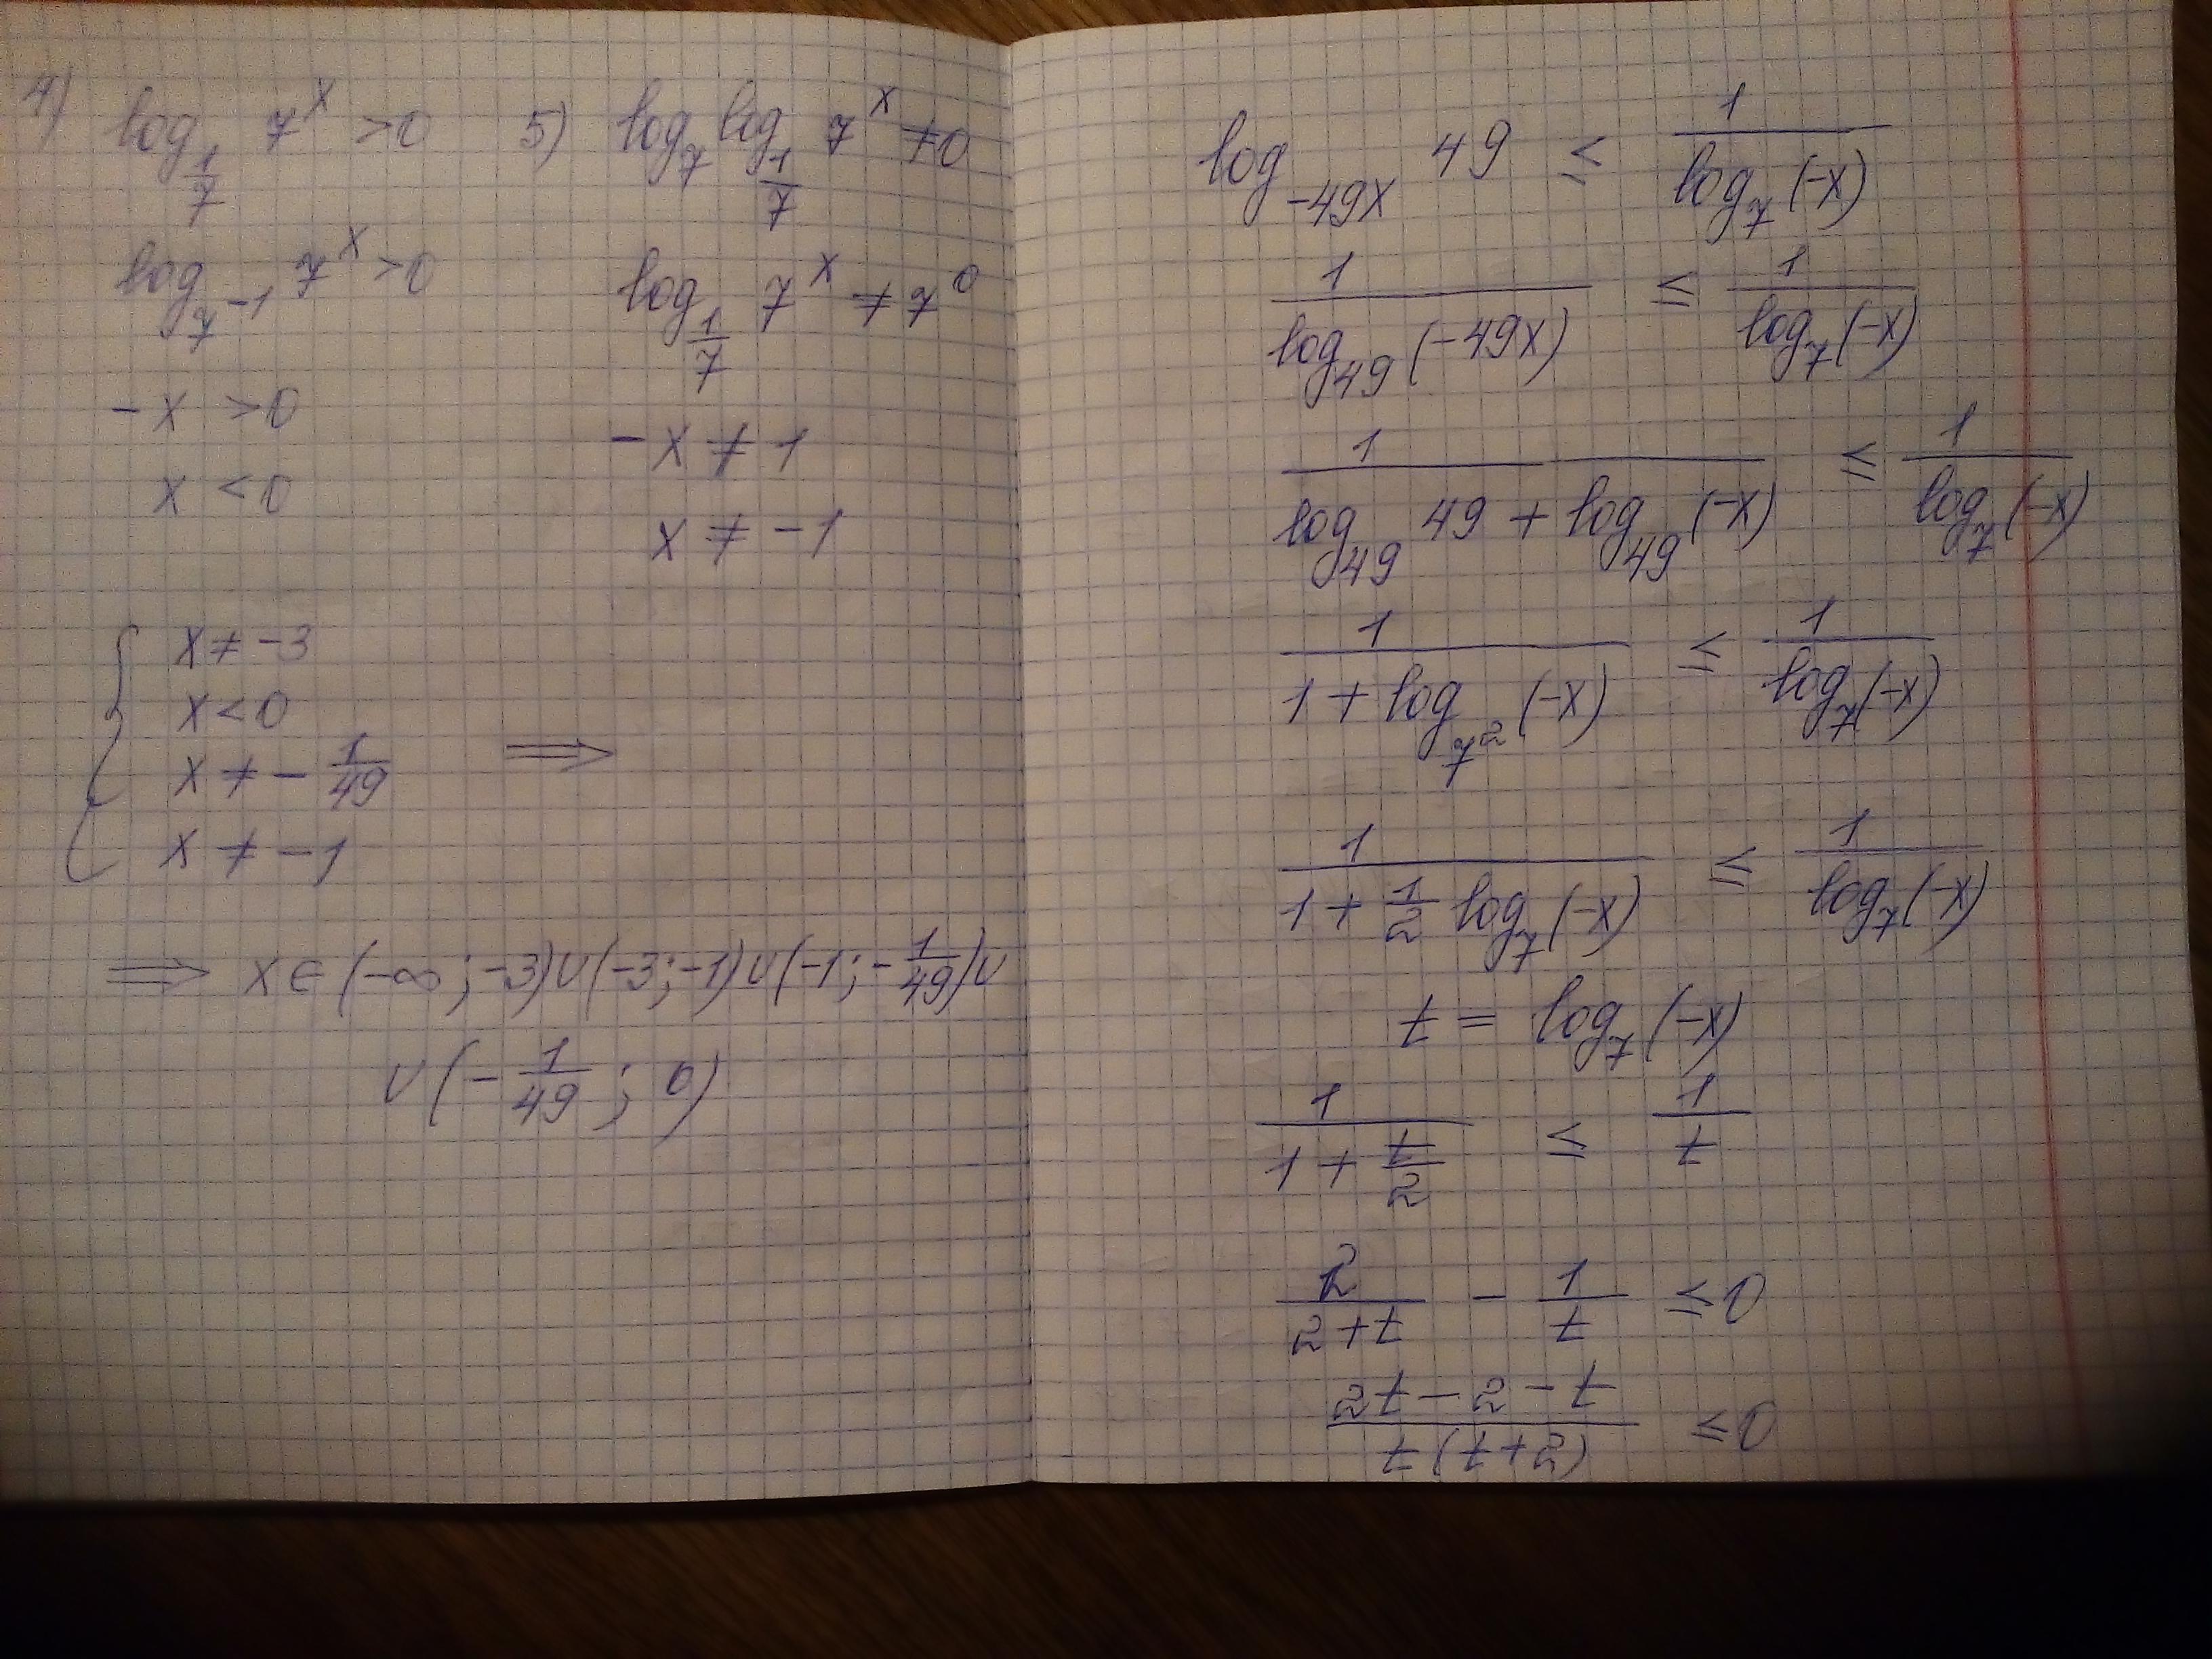 4) log_{1/7} 7^x > 0
log_{7^{-1}} 7^x > 0
-x > 0
x < 0
5) log_7 log_{1/7} 7^x ≠ 0
log_{1/7} 7^x ≠ 7^0
-x ≠ 1
x ≠ -1
{ x ≠ -3
x < 0
x ≠ -1/49 ⟹
x ≠ -1
⟹ x ∈ (-∞; -3) ∪ (-3; -1) ∪ (-1; -1/49) ∪
∪ (-1/49; 0)
log_{-49x} 49 ≤ 1/(log_7 (-x))
1/(log_{49} (-49x)) ≤ 1/(log_7 (-x))
1/(log_{49} 49 + log_{49} (-x)) ≤ 1/(log_7 (-x))
1/(1 + log_{7^2} (-x)) ≤ 1/(log_7 (-x))
1/(1 + 1/2 log_7 (-x)) ≤ 1/(log_7 (-x))
t = log_7 (-x)
1/(1 + t/2) ≤ 1/t
2/(2+t) - 1/t ≤ 0
(2t - 2 - t)/(t(t+2)) ≤ 0